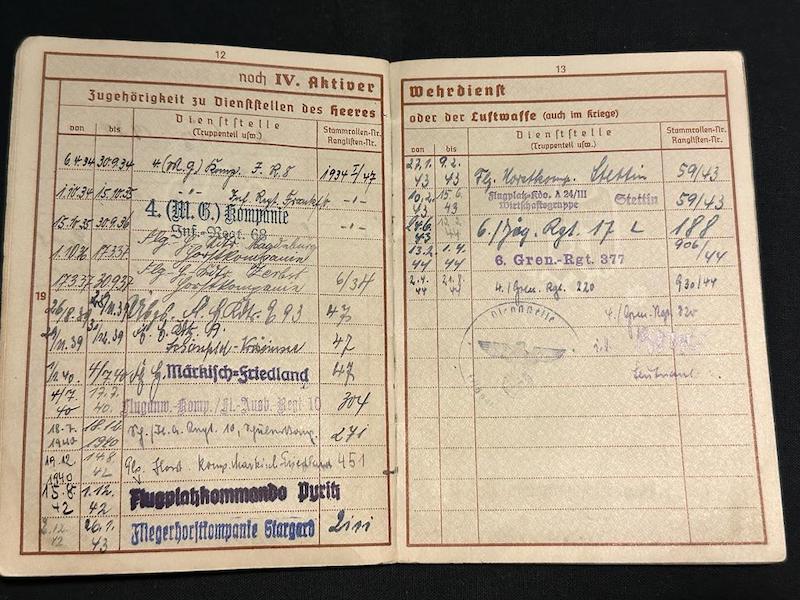 12
noch IV. Aktiver
Zugehörigkeit zu Dienststellen des Heeres
von
bis
Dienststelle
(Truppenteil usw.)
Stammrollen-Nr.
Ranglisten-Nr.
6.4.34 30.9.34 4 (M.G) Komp. J. R. 8 1934 I/47
1.10.34 15.10.35 -"- Inf. Rgt. Frankft -"-
15.10.35 30.9.36 4. (M. G.) Kompanie -"-
Inf.-Regt. 68
1.10.36 17.3.37
Horstkompanie
17.3.37 30.9.37 Zerbst 6/34
Horstkompanie
19
26/8.39 47
39 39 Schönfeld- 47
4/7 40 Märkisch-Friedland 47
4/7. 40 17.7. 40. Fluganw.-Komp./Fl.-Ausb. Regt. 10 304
18.7. 1940 18.12. 1940 10, 271
19.12. 1940 14.8. 42 Horst Komp. Märkisch Friedland 451
15.8. 42 1.12. 42 Flugplatzkommando Pyritz
2.12. 42 26.1. 43 Fliegerhorstkompanie Stargard
13
Wehrdienst
oder der Luftwaffe (auch im Kriege)
von
bis
Dienststelle
(Truppenteil usw.)
Stammrollen-Nr.
Ranglisten-Nr.
27.1. 43 9.2. 43 Flg. Horstkomp. Stettin 59/43
10.2. 43 15.6. 43 Flugplatz-Kdo. A 24/III Stettin 59/43
Wirtschaftsgruppe
24.6. 43 12.2. 6./Jäg. Rgt. 17 L 188
13.2. 44 1.4. 44 6. Gren.-Rgt. 377 906/44
2.4. 44 44 4./Gren. Rgt. 220 930/44
Dienststelle
4./Gren. Rgt.
Leutnant